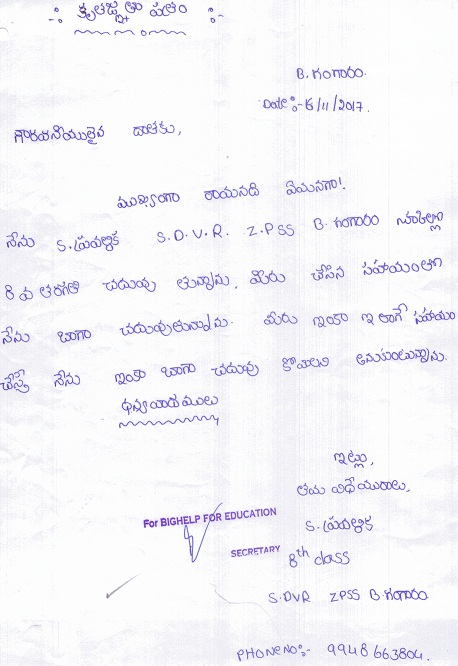 -: కృతజ్ఞతా పత్రం :-
B. గంగారం.
Date :- 6/11/2017.
గౌరవనీయులైన దాతకు,
ముఖ్యంగా రాయనది ఏమనగా!.
నేను S. ప్రవల్లిక S. D. V. R. Z. PSS B. గంగారం
8 వ తరగతి చదువు తున్నాను. మీరు చేసిన సహాయం
నేను బాగా చదువుతున్నాను. మీరు ఇంకా ఇలాగే సహాయం
చేస్తే నేను ఇంకా బాగా చదువు కోవాలని అనుకుంటున్నాను.
ధన్యవాదములు
ఇట్లు,
తమ విధేయురాలు,
For BIGHELP FOR EDUCATION
S. ప్రవల్లిక
SECRETARY
8th class
S. DVR ZPSS B. గంగారం
PHONE NO:- 9948663804.